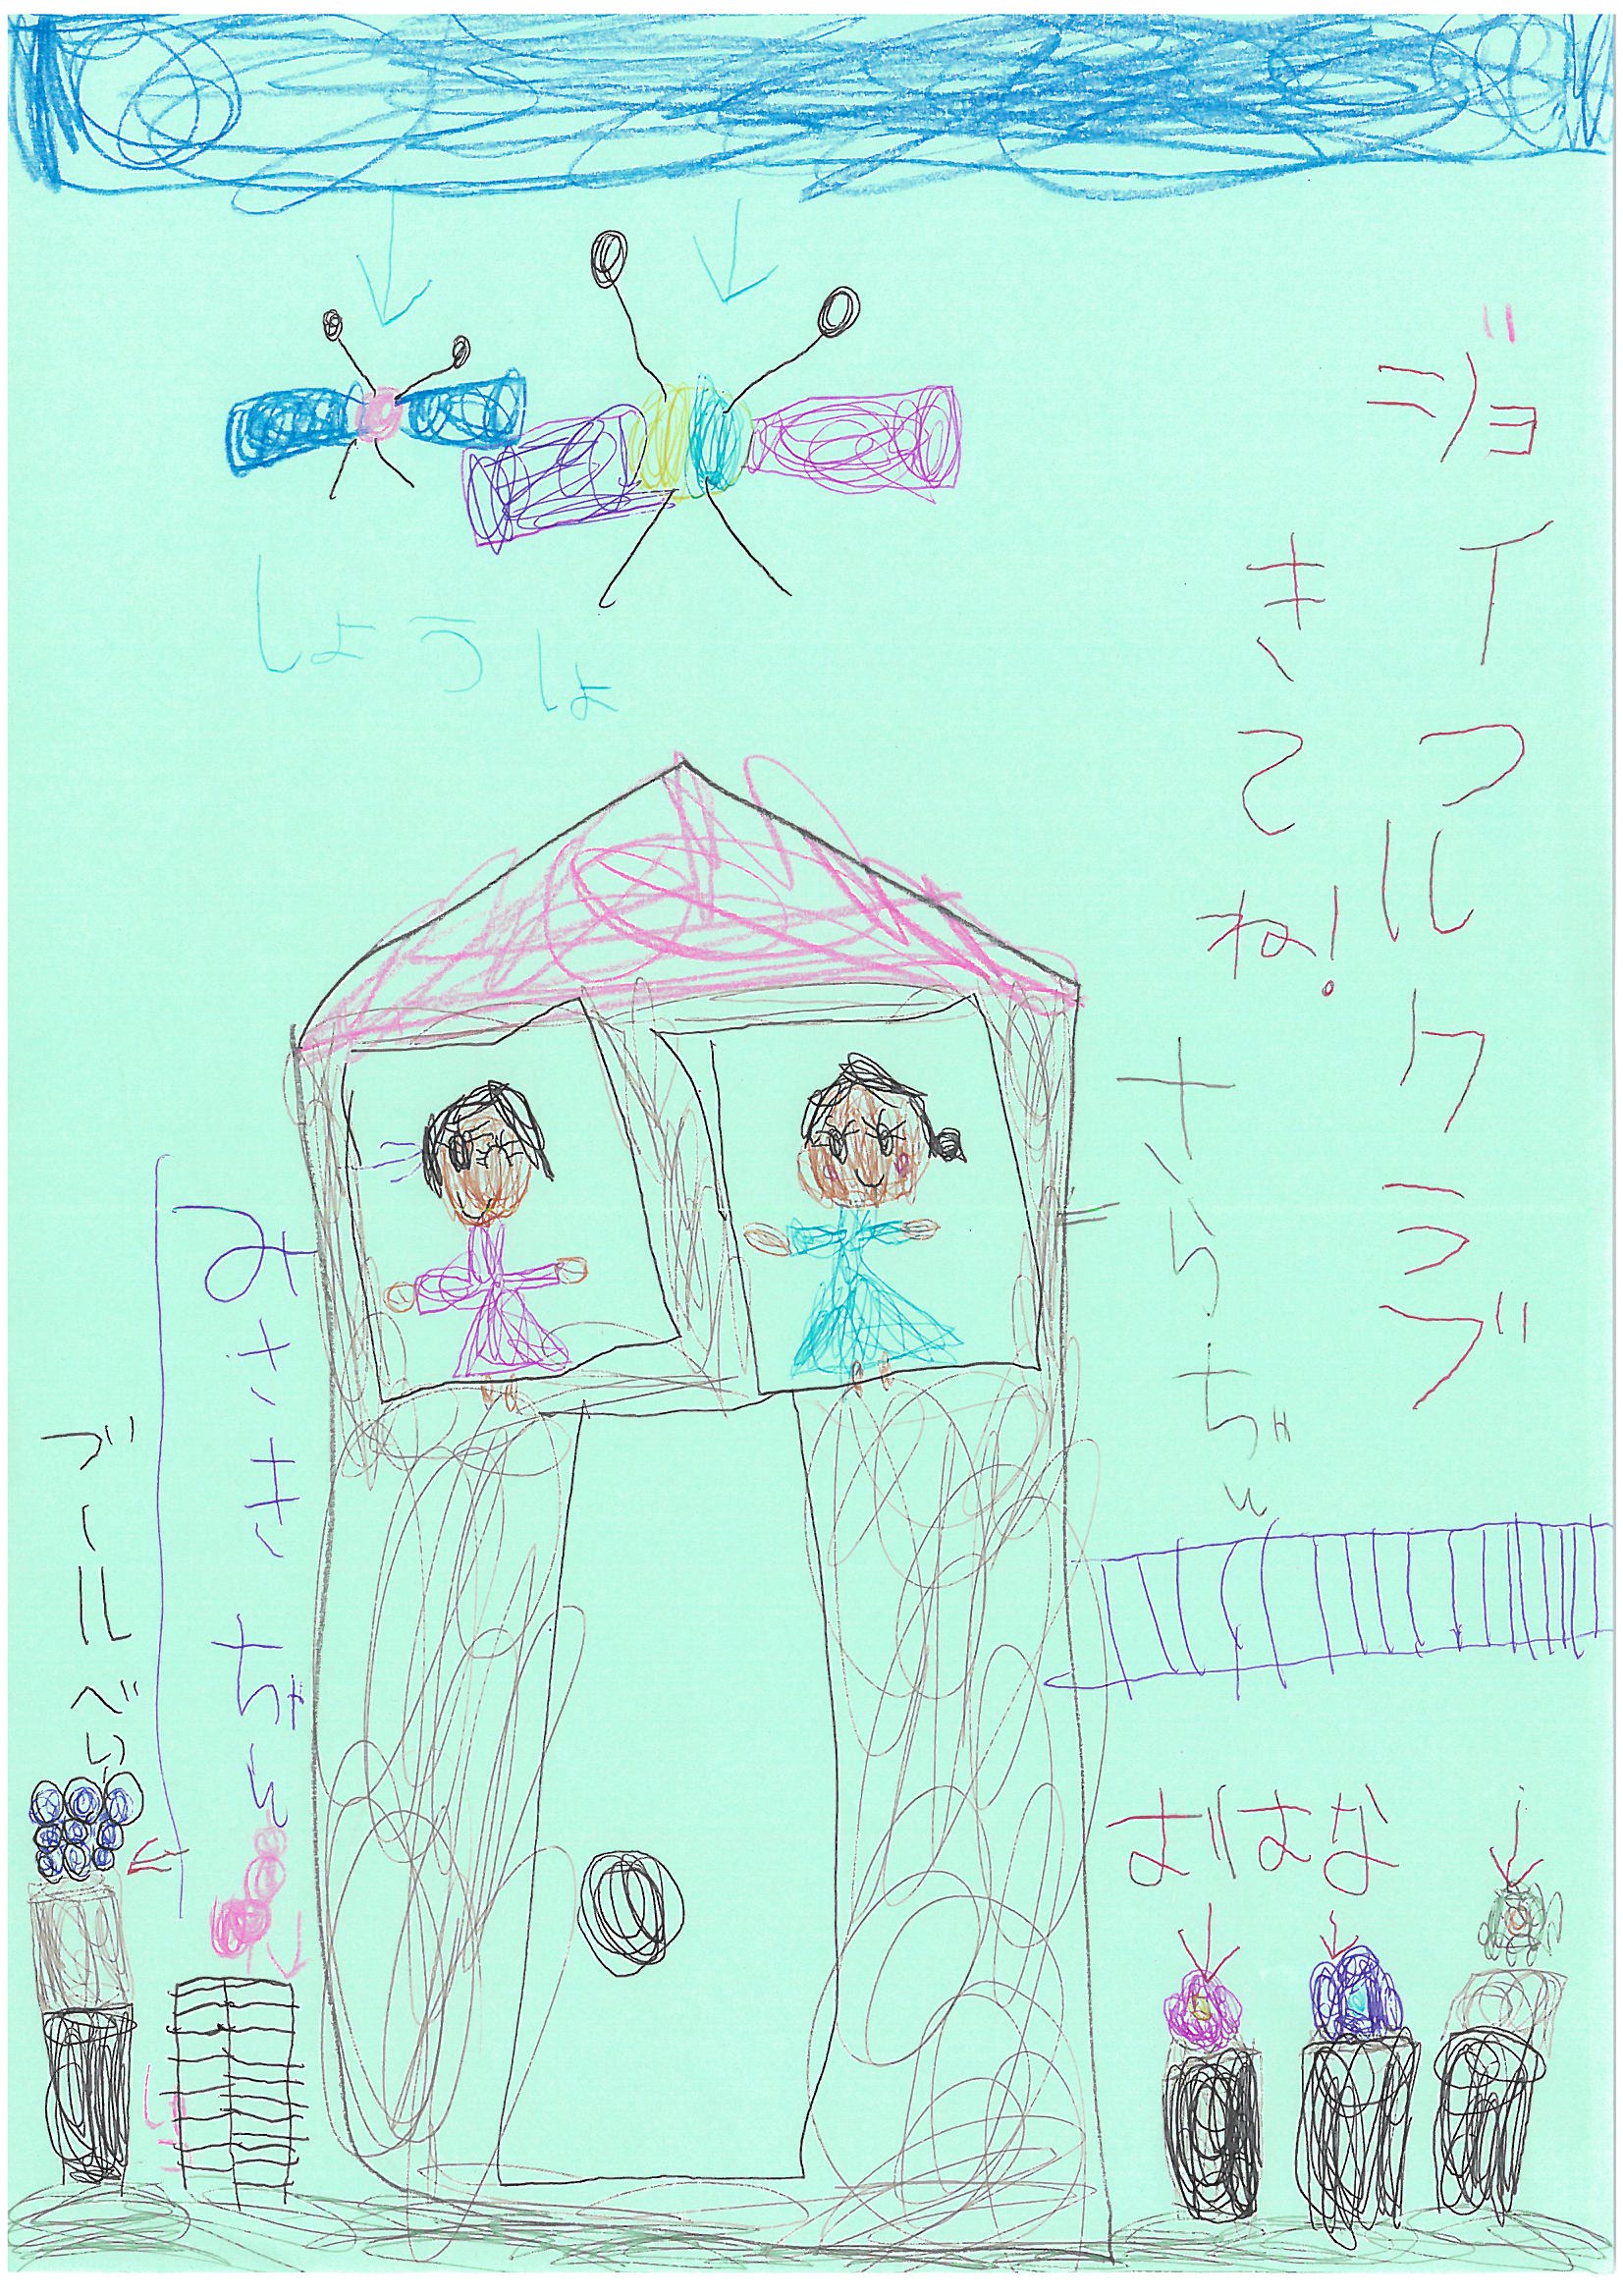 ジョイフルクラブ
きてね!
さらちゃん
しょうしょ
みさきちゃん
ブールべり
おはな